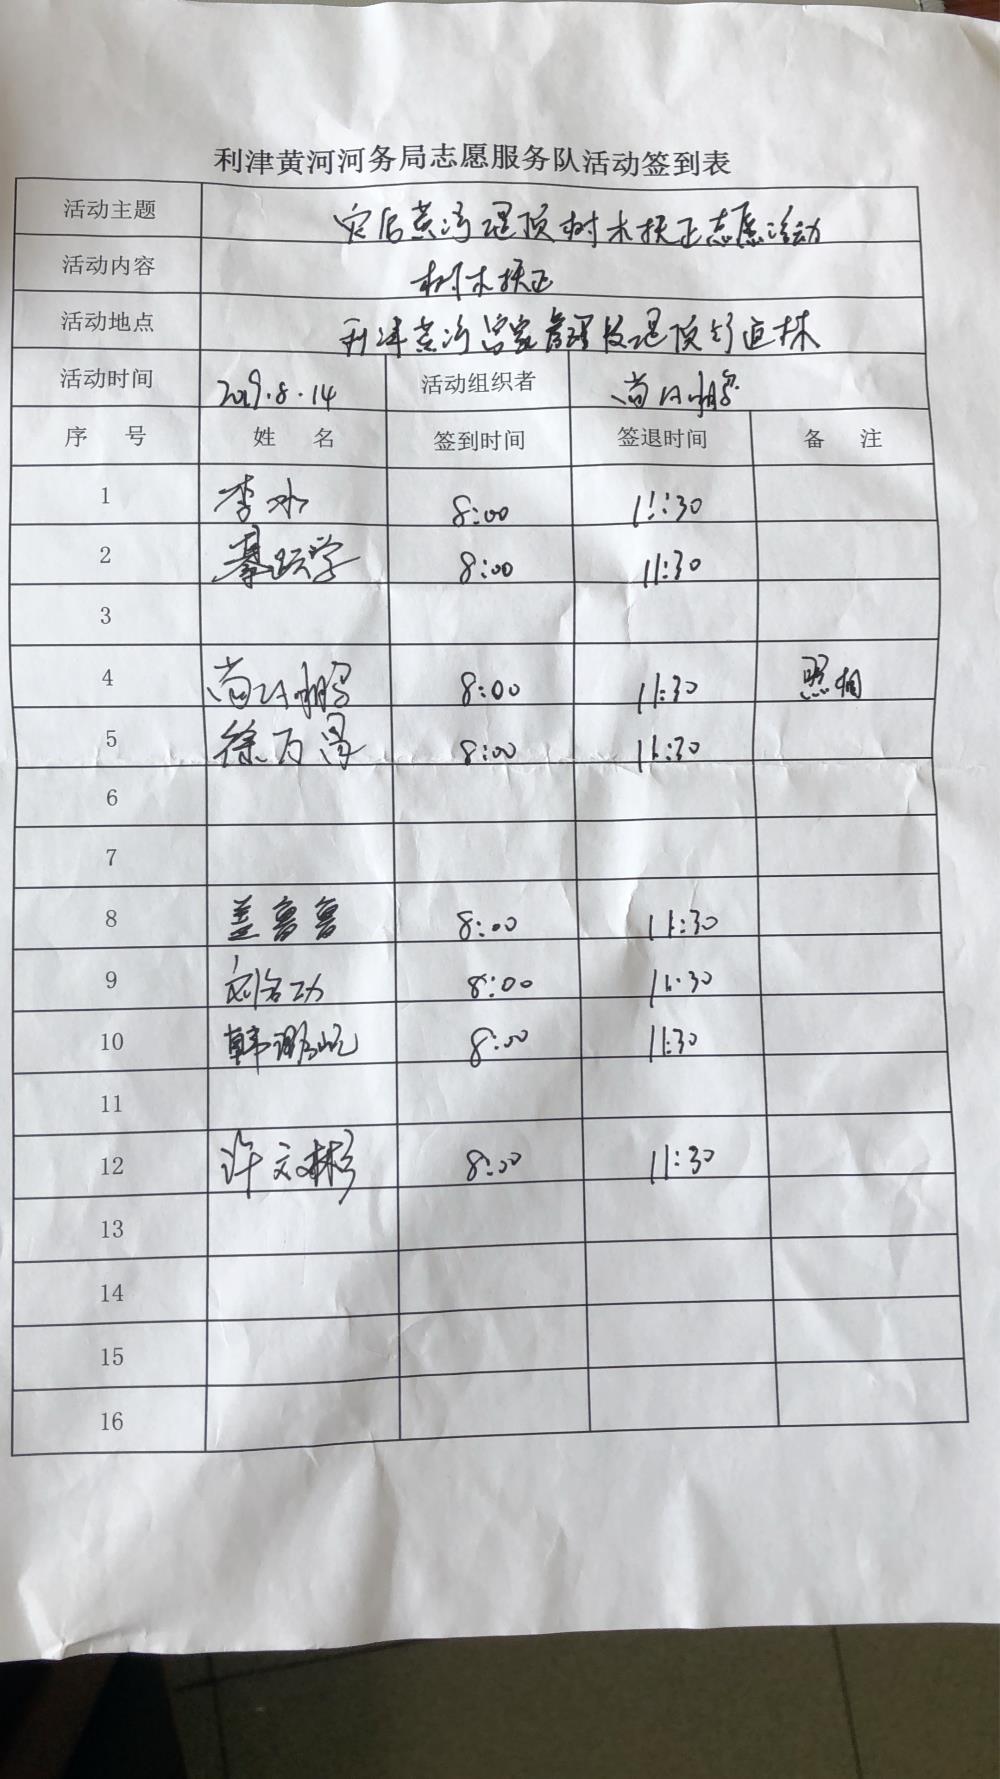 利津黄河河务局志愿服务队活动签到表
活动主题 灾后黄河堤顶树木扶正志愿活动
活动内容 树木扶正
活动地点 利津黄河宫家管理段堤顶行道林
活动时间 2019.8.14 活动组织者 尚
序 号 姓 名 签到时间 签退时间 备 注
1 李 8:00 11:30
2 綦跃学 8:00 11:30
3
4 尚 8:00 11:30 照相
5 徐万 8:00 11:30
6
7
8 盖鲁鲁 8:00 11:30
9 刘名功 8:00 11:30
10 韩 8:00 11:30
11
12 许文彬 8:00 11:30
13
14
15
16